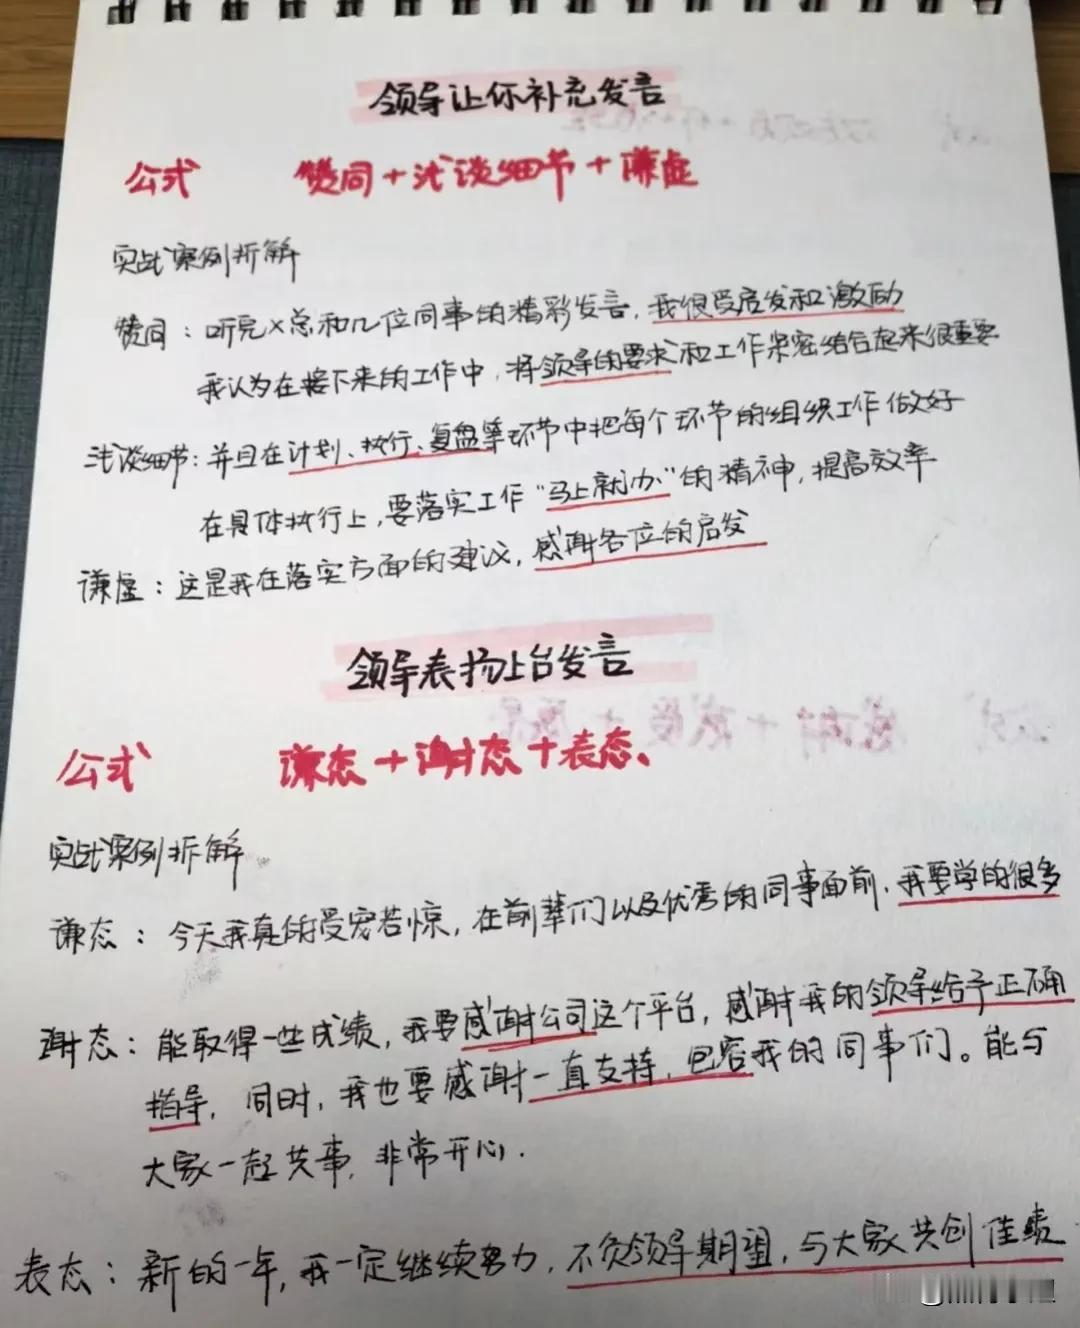 领导让你补充发言
公式 赞同+浅谈细节+谦虚
实战案例拆解
赞同：听完X总和几位同事的精彩发言，我很受启发和激励
我认为在接下来的工作中，将领导的要求和工作紧密结合起来很重要
浅谈细节：并且在计划、执行、复盘等环节中把每个环节的组织工作做好
在具体执行上，要落实工作“马上就办”的精神，提高效率
谦虚：这是我在落实方面的建议，感谢各位的启发
领导表扬上台发言
公式 谦态+谢态+表态、
实战案例拆解
谦态：今天我真的受宠若惊，在前辈们以及优秀的同事面前，我要学的很多
谢态：能取得一些成绩，我要感谢公司这个平台，感谢我的领导给予正确
指导，同时，我也要感谢一直支持，包容我的同事们。能与
大家一起共事，非常开心.
表态：新的一年，我一定继续努力，不负领导期望，与大家共创佳绩